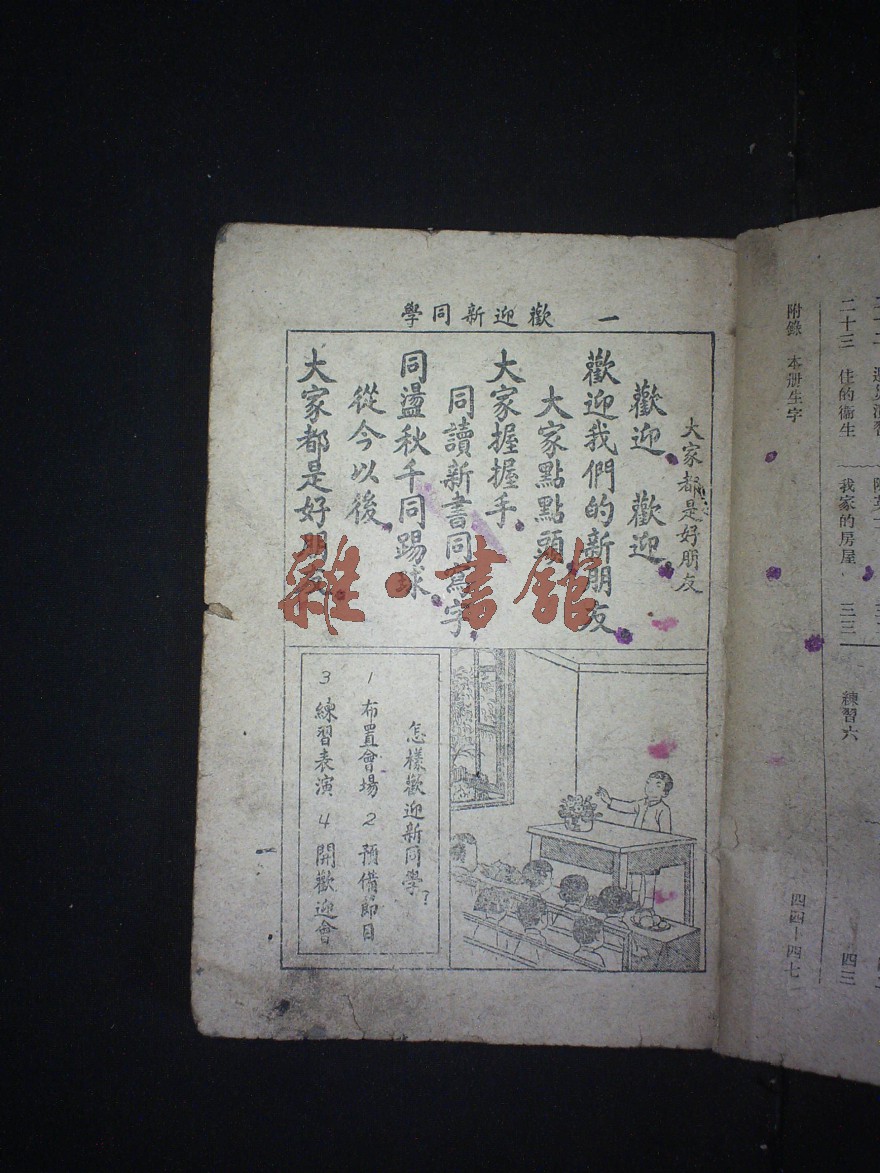 一 歡迎新同學
大家都是好朋友
歡迎，歡迎，
歡迎我們的新朋友。
大家點點頭，
大家握握手，
同讀新書同寫字，
同盪秋千同踢球。
從今以後，
大家都是好朋友。
怎樣歡迎新同學？
1 布置會場 2 預備節目
3 練習表演 4 開歡迎會
雜·書館
附錄 本册生字 四四—四七
練習六
二十三 住的衞生 我家的房屋 三三 四三